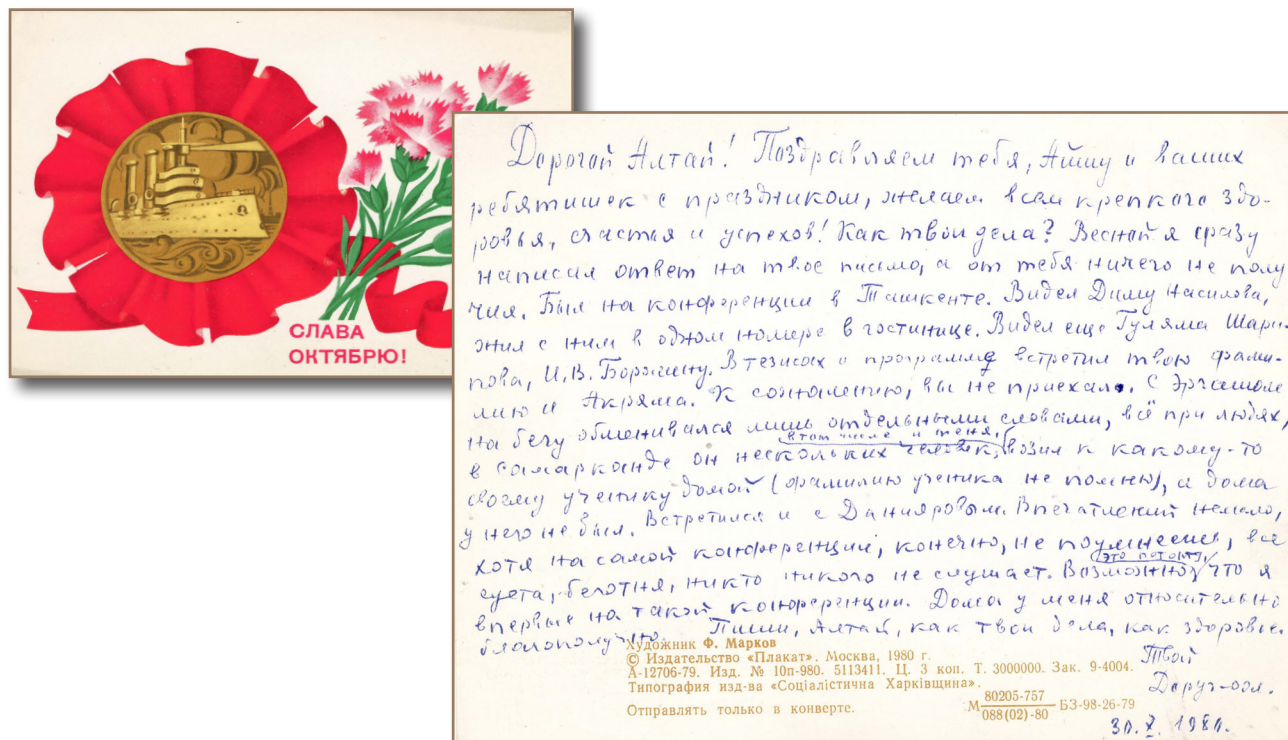 СЛАВА
ОКТЯБРЮ!
Дорогой Алтай! Поздравляем тебя, Айшу и ваших
ребятишек с праздником, желаем всем крепкого здо-
ровья, счастья и успехов! Как твои дела? Весной я сразу
написал ответ на твое письмо, а от тебя ничего не полу
чил. Был на конференции в Ташкенте. Видел Диму Насилова,
жил с ним в одном номере в гостинице. Видел еще Гуляма Шари-
пова, И.В. В тезисах и программе встретил твою фами-
лию и Акряма. К сожалению, вы не приехали. С Эргашом
на бегу обменивался лишь отдельными словами, всё при людях,
в том числе и меня,
в Самарканде он нескольких человек, возил к какому-то
своему ученику домой (фамилию ученика не помню), а дома
у него не был. Встретился и с Данияровым. Впечатлений немало,
хотя на самой конференции, конечно, не поумнеешь, все
это потому,
суета, беготня, никто никого не слушает. Возможно, что я
впервые на такой конференции. Дома у меня относительно
благополучно. Пиши, Алтай, как твои дела, как здоровье.
Твой
30.X.1980.
Художник Ф. Марков
© Издательство «Плакат». Москва, 1980 г.
А-12706-79. Изд. № 10п-980. 5113411. Ц. 3 коп. Т. 3000000. Зак. 9-4004.
Типография изд-ва «Соціалістична Харківщина».
Отправлять только в конверте.
М 80205-757 БЗ-98-26-79
088(02)-80